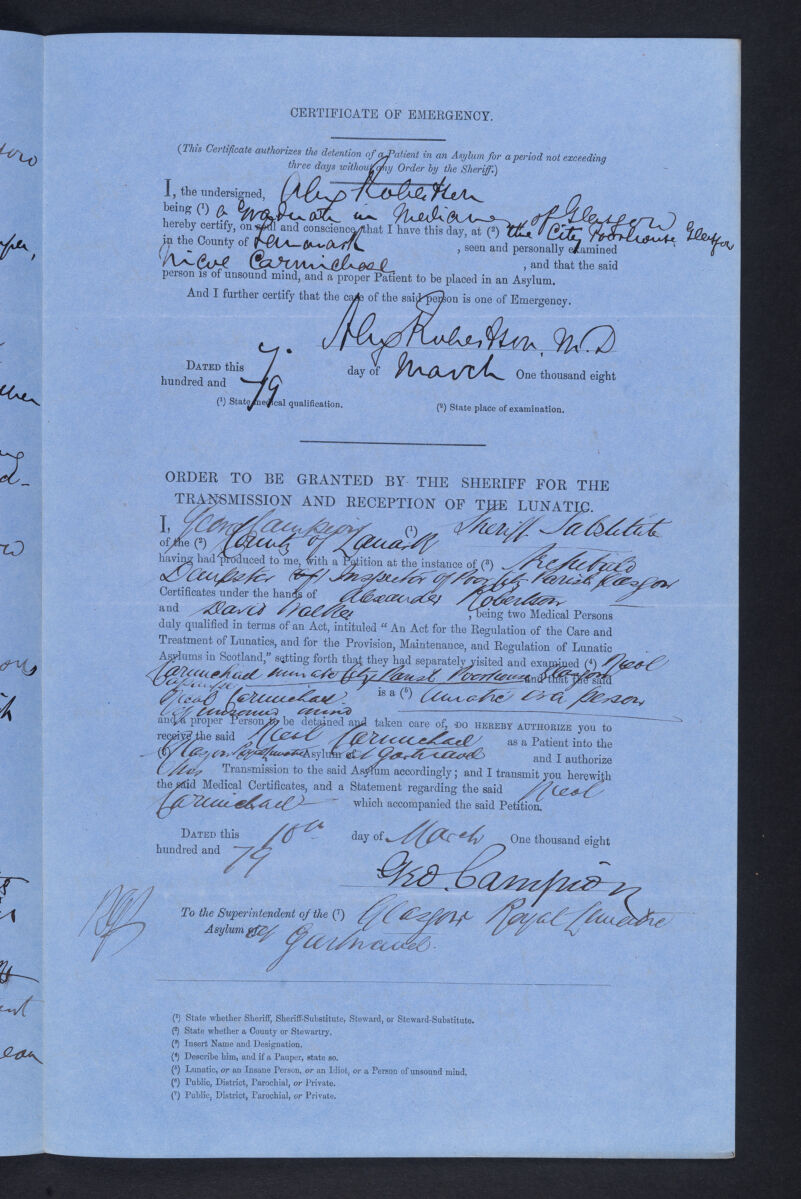 CERTIFICATE OF EMERGENCY.
(This Certificate authorizes the detention of a Patient in an Asylum for a period not exceeding
three days without any Order by the Sheriff.)
I, the undersigned, Alex Robertson
being (¹) a Graduate in Medicine of Glasgow
hereby certify, on soul and conscience, that I have this day, at (²) the City Poorhouse Glasgow
in the County of Lanark , seen and personally examined
Nicol Carmichael , and that the said
person is of unsound mind, and a proper Patient to be placed in an Asylum.
And I further certify that the case of the said person is one of Emergency.
Alex Robertson, M.D
DATED this 7. day of March One thousand eight
hundred and 79
(¹) State medical qualification. (²) State place of examination.
ORDER TO BE GRANTED BY THE SHERIFF FOR THE
TRANSMISSION AND RECEPTION OF THE LUNATIC.
I, Campion (¹) Sheriff Substitute
of the (²) County of Lanark
having had produced to me, with a Petition at the instance of (³) Archibald
Dempster Inspector of Poor City Parish Glasgow
Certificates under the hands of Alexander Robertson
and David Walker , being two Medical Persons
duly qualified in terms of an Act, intituled "An Act for the Regulation of the Care and
Treatment of Lunatics, and for the Provision, Maintenance, and Regulation of Lunatic
Asylums in Scotland," setting forth that they had separately visited and examined (⁴) Nicol
Carmichael inmate City Parish Poorhouse Glasgow and that the said
Nicol Carmichael is a (⁵) Lunatic or a person
of unsound mind
and a proper Person to be detained and taken care of, DO HEREBY AUTHORIZE you to
receive the said Nicol Carmichael as a Patient into the
(⁶) Glasgow Royal Lunatic Asylum at Gartnavel and I authorize
his Transmission to the said Asylum accordingly; and I transmit you herewith
the said Medical Certificates, and a Statement regarding the said Nicol
Carmichael which accompanied the said Petition.
DATED this 10th day of March One thousand eight
hundred and 79
Geo. Campion
To the Superintendent of the (⁷) Glasgow Royal Lunatic
Asylum at Gartnavel.
(¹) State whether Sheriff, Sheriff-Substitute, Steward, or Steward-Substitute.
(²) State whether a County or Stewartry.
(³) Insert Name and Designation.
(⁴) Describe him, and if a Pauper, state so.
(⁵) Lunatic, or an Insane Person, or an Idiot, or a Person of unsound mind.
(⁶) Public, District, Parochial, or Private.
(⁷) Public, District, Parochial, or Private.